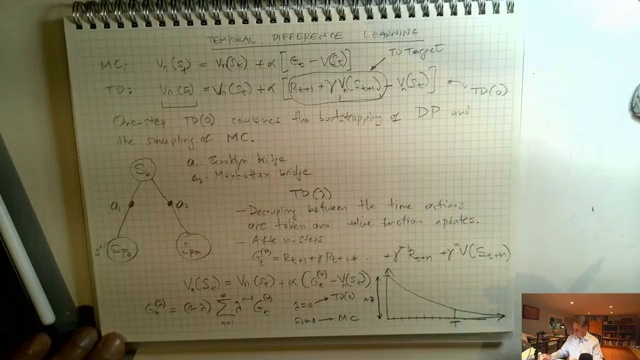 TEMPORAL DIFFERENCE LEARNING
MC: Vπ(St) = Vπ(St) + α [Gt − V(St)]
TD Target
TD: Vπ(St) = Vπ(St) + α [Rt+1 + γ Vπ(St+1) − Vπ(St)]
TD(0)
One-step TD(0) combines the bootstrapping of DP and
the sampling of MC.
a1: Brooklyn bridge
a2: Manhattan bridge
a1
a2
TD(λ)
- Decoupling between the time actions
are taken and value function updates.
- After n-steps
Gt(n) = Rt+1 + γ Rt+2 + ... + γ Rt+n + γn V(St+n)
Vπ(St) = Vπ(St) + α (Gt(n) − V(St))
Gt(λ) = (1−λ) Σ λn-1 Gt(n)
λ=0 → TD(0)
→ MC
T